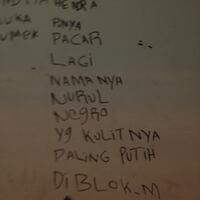 HENDRA
PUNYA
PACAR
LAGI
NAMANYA
NURUL
NEGRO
YG KULITNYA
PALING PUTIH
DI BLOK.M